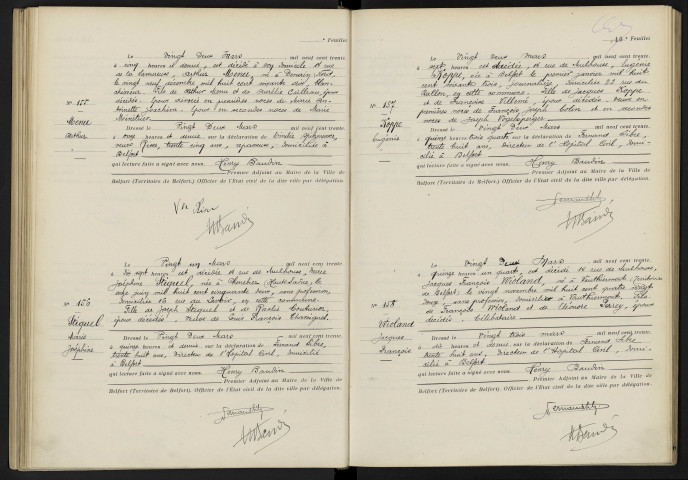 ° Feuillet
Le Vingt Deux Mars mil neuf cent trente
à cinq heures et demie, est décédé à son domicile 11 rue
de la Savoureuse, Arthur Meme, né à Denain, Nord,
le vingt neuf décembre mil huit cent soixante
Fils de Arthur Meme et de Aurélie époux
décédés. Époux divorcé en premières noces de Marie
Joachim. Époux en secondes noces de Marie
N° 155
Meme
Arthur
Dressé le Vingt Deux Mars mil neuf cent trente
onze heures et demie sur la déclaration de Émilie
trente cinq ans, domiciliée à
Belfort
qui lecture faite a signé avec nous Henry Baudin
Premier Adjoint au Maire de la Ville de
Belfort (Territoire de Belfort), Officier de l'Etat civil de la dite ville par délégation.
Le Vingt un Mars mil neuf cent trente
à dix sept heures est décédée 14 rue de Mulhouse, Marie
Joséphine Stiguel, née à (Haute-Saône), le
mil huit cent cinquante sans profession,
domiciliée 16 rue en cette commune.
Fille de Joseph Stiguel et de
époux décédés. Veuve de Louis François
N° 156
Stiguel
Marie
Joséphine
Dressé le Vingt Deux Mars mil neuf cent trente
à quinze heures et demie, sur la déclaration de Fernand Libre,
trente huit ans, Directeur de l'Hôpital Civil, domicilié
à Belfort
qui lecture faite a signé avec nous Henry Baudin
Premier Adjoint au Maire de la Ville de
Belfort (Territoire de Belfort), Officier de l'Etat civil de la dite ville par délégation.
° Feuillet
Le Vingt Deux Mars mil neuf cent trente
à sept heures est décédée, 14 rue de Mulhouse, Eugénie
Koppe, née à Belfort le premier janvier mil huit
cent soixante trois, journalière, domiciliée 22 rue du
Ballon, en cette commune. Fille de Jacques Koppe
et de Françoise Villemé, époux décédés. Veuve en
premières noces de François Joseph Colin et en secondes
noces de Joseph
N° 157
Koppe
Eugénie
Dressé le Vingt Deux Mars mil neuf cent trente
quinze heures trois quarts sur la déclaration de Fernand Libre,
trente huit ans, Directeur de l'Hôpital Civil, domi-
cilié à Belfort
qui lecture faite a signé avec nous Henry Baudin
Premier Adjoint au Maire de la Ville de
Belfort (Territoire de Belfort), Officier de l'Etat civil de la dite ville par délégation.
Le Vingt Deux Mars mil neuf cent trente
à quinze heures un quart, est décédé 14 rue de Mulhouse,
Jacques François Violand, né à Vauthiermont (Territoire
de Belfort) le vingt novembre mil huit cent quatre vingt
deux, sans profession, domicilié à Vauthiermont, Fils
de François Violand et de Eléonore époux
décédés. Célibataire
N° 158
Violand
Jacques
François
Dressé le Vingt trois mars mil neuf cent trente
dix heures et demie sur la déclaration de Fernand Libre
trente huit ans, Directeur de l'Hôpital Civil, domi-
cilié à Belfort
qui lecture faite a signé avec nous Henry Baudin
Premier Adjoint au Maire de la Ville de
Belfort (Territoire de Belfort), Officier de l'Etat civil de la dite ville par délégation.